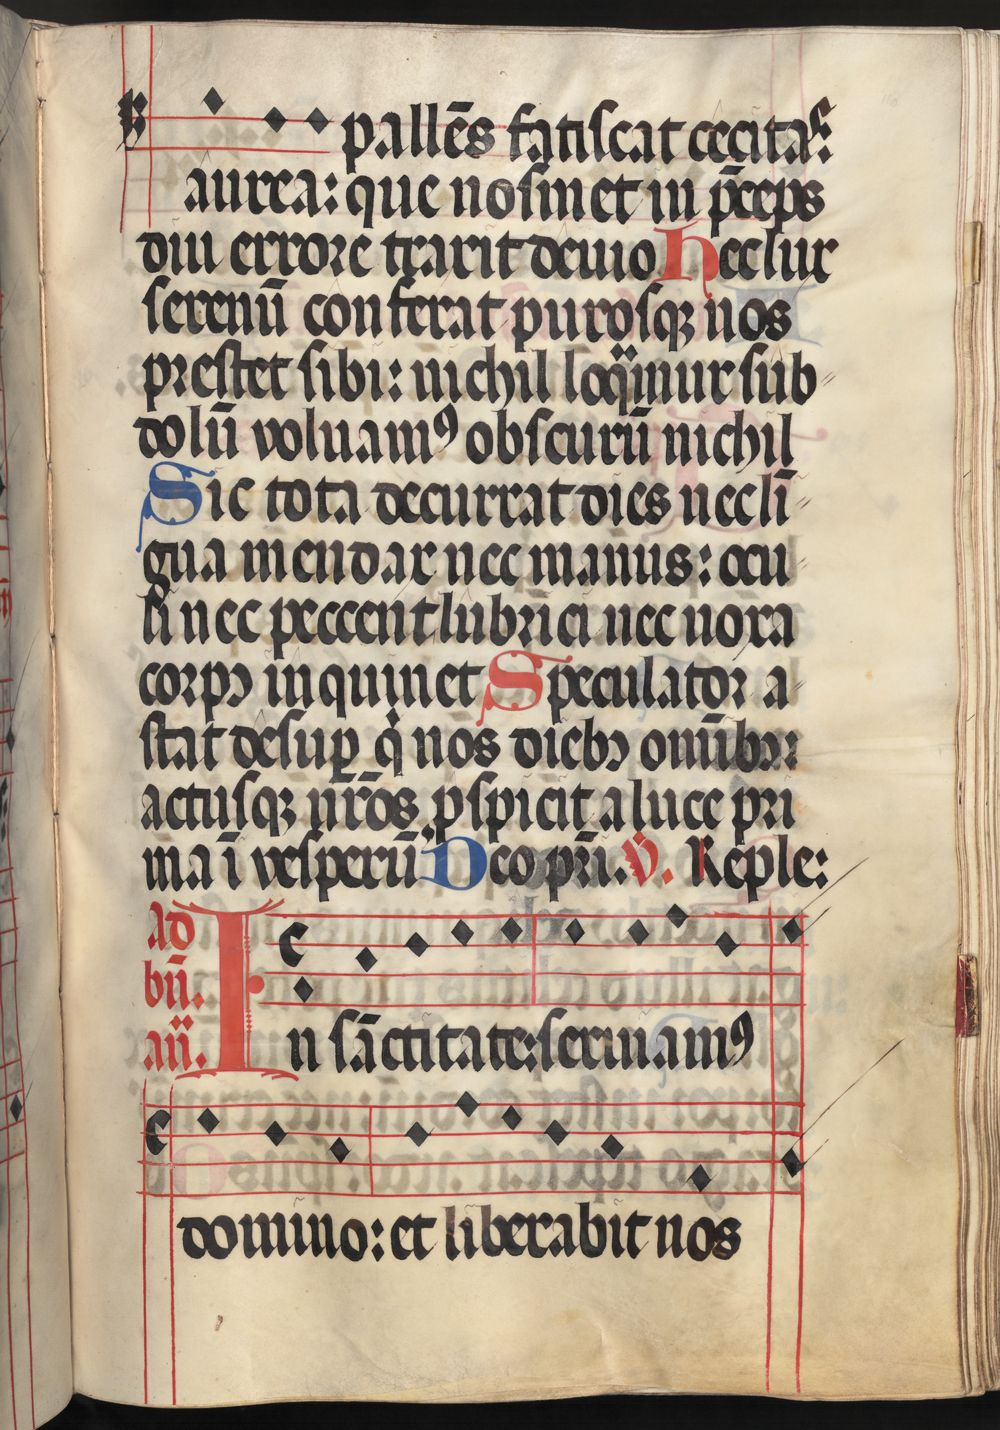 pallēs fatiscat cecitas:
aurea: que nosmet in p̄ceps
diu errore traxit deuio Hec lux
serenū conferat purosqꝫ nos
prestet sibi: nichil loqͥmur sub
dolū voluamꝰ obscurū nichil
Sic tota decurrat dies nec lī
gua mendax nec manus: ocu
li nec peccent lubrici nec noxa
corpꝰ inquinet Speculator a
stat desuꝑ qͥ nos diebꝰ om̄ibꝰ:
actusqꝫ nr̄os ꝑspicit a luce pri
ma ī vesperū Deo pr̄i. V. Reple:
ad
bn̄.
an̄.
In sāctitate: seruiamꝰ
domino: et liberabit nos